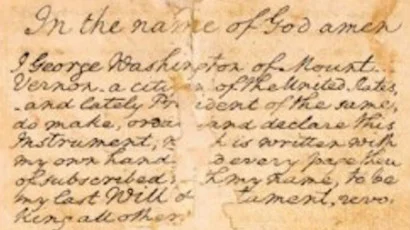 In the name of God amen
I George Washington of Mount
Vernon - a citizen of the United States,
and lately President of the same,
do make, ordain and declare this
Instrument, which is written with
my own hand and every page
of subscribed with my name, to be
my last Will & Testament, revo-
king all other